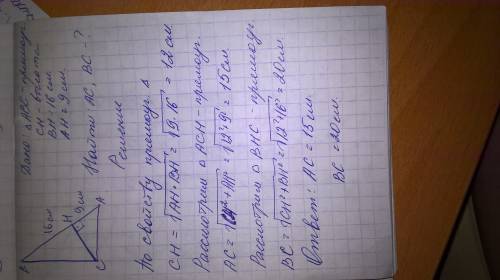 Дано: △ABC - прямоуг.
CH - высота
BH = 16 см.
AH = 9 см.
Найти: AC, BC - ?
Решение
B
16 см
H
9 см
C
A
По свойству прямоуг. △
CH = √AH·BH = √9·16 = 12 см.
Рассмотрим △ ACH - прямоуг.
AC = √CH²+AH² = √12²+9² = 15 см.
Рассмотрим △ BHC - прямоуг
BC = √CH²+BH² = √12²+16² = 20 см.
Ответ: AC = 15 см.
BC = 20 см.